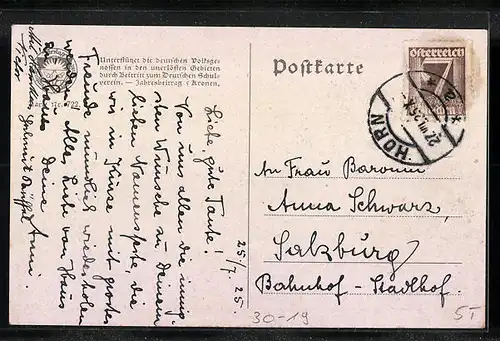 Unterstützet die deutschen Volksge-
nossen in den unerlösten Gebieten
durch Beitritt zum Deutschen Schul-
verein. — Jahresbeitrag 1 Kronen.
Karte Nr. 722.
Postkarte
Österreich
7
HORN
27.VII.25
25/7. 25.
Liebe, gute Tante!
Von uns allen die innig-
sten Wünsche zu Deinem
lieben Namensfeste, die
wir in Kürze mit großer
Freude mündlich wiederholen
werden. Alles Liebe von Haus
zu Haus Deine
Anni.
An Frau Baronin
Anna Schwarz,
Salzburg
Bahnhof - Stadlhof.
30-19
5T